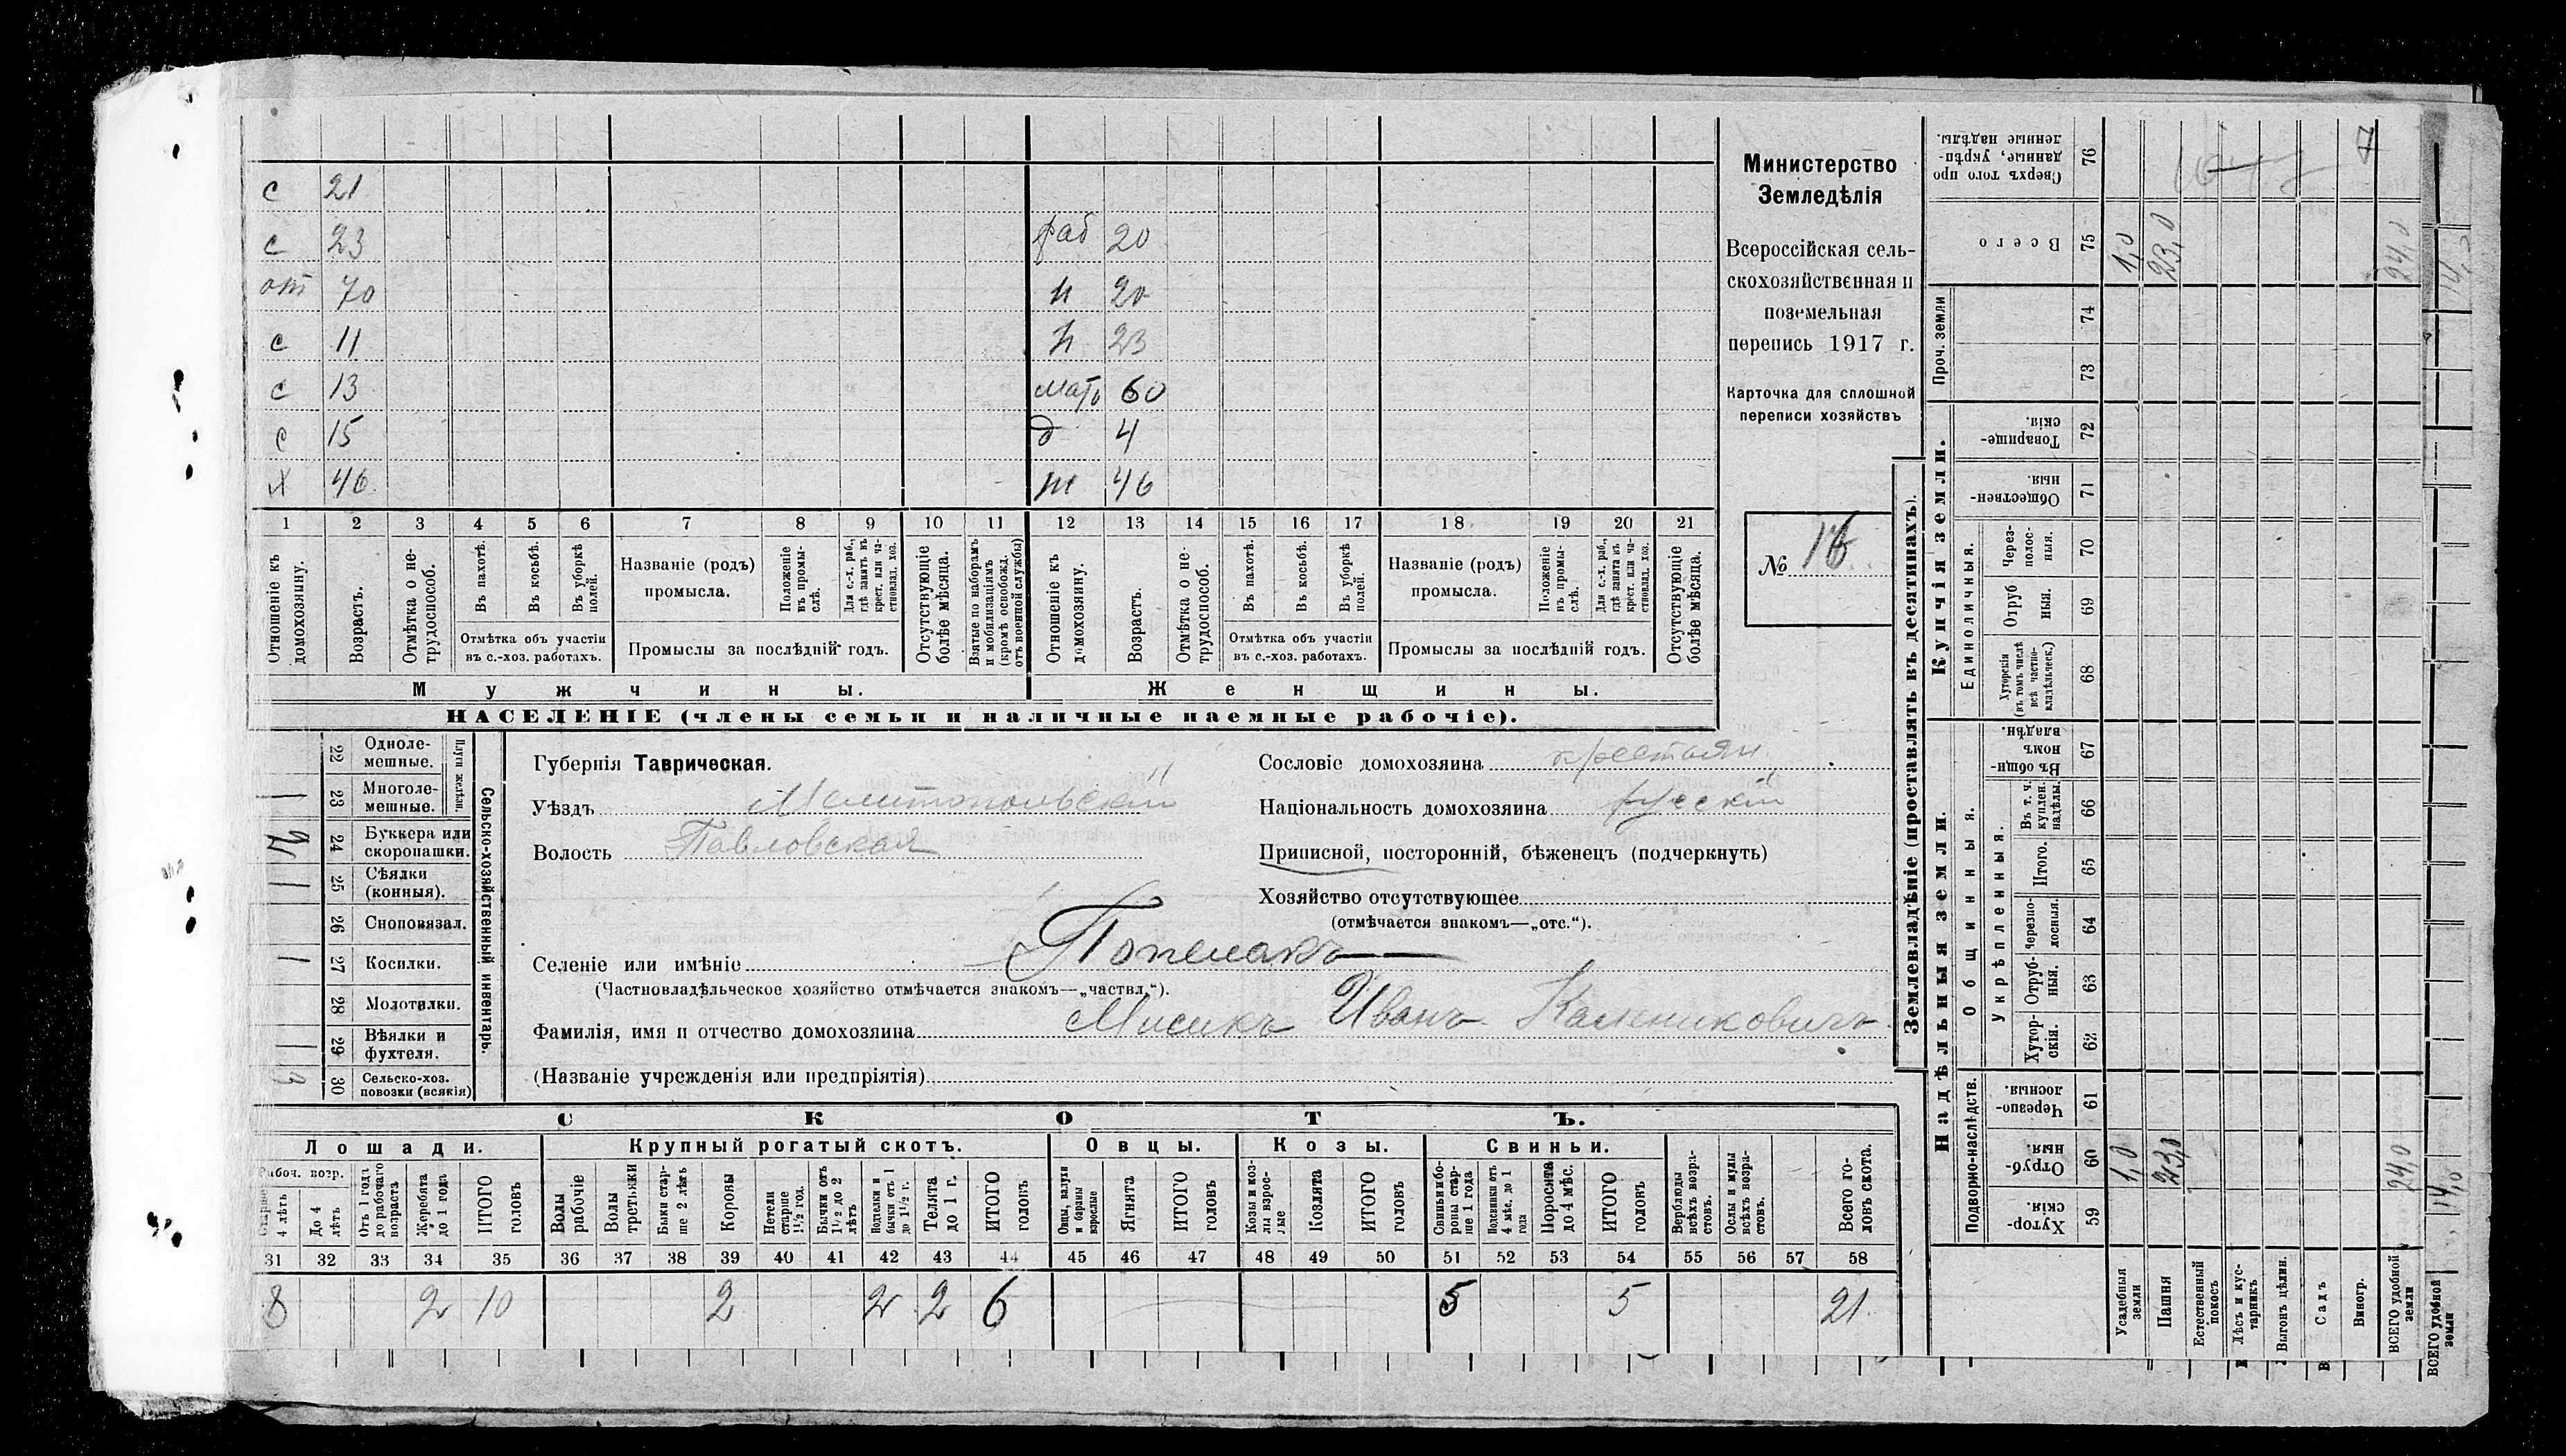 с 21
с 23 раб 20
от 70 н 20
с 11 н 23
с 13 мать 60
с 15 д 4
х 46 ж 46
1 2 3 4 5 6 7 8 9 10 11 12 13 14 15 16 17 18 19 20 21
Отношеніе къ домохозяину.
Возрастъ.
Отмѣтка о нетрудоспособ.
Въ пахотѣ.
Въ косьбѣ.
Въ уборкѣ полей.
Отмѣтка объ участіи
въ с.-хоз. работахъ.
Названіе (родъ)
промысла.
Положеніе въ промыслѣ.
Для с.-х. раб., гдѣ занятъ въ крест. или частновлад. хоз.
Промыслы за послѣдній годъ.
Отсутствующіе болѣе мѣсяца.
Взятые по наборамъ и мобилизаціямъ (кромѣ освобожд. отъ военной службы)
Отношеніе къ домохозяину.
Возрастъ.
Отмѣтка о нетрудоспособ.
Въ пахотѣ.
Въ косьбѣ.
Въ уборкѣ полей.
Отмѣтка объ участіи
въ с.-хоз. работахъ.
Названіе (родъ)
промысла.
Положеніе въ промыслѣ.
Для с.-х. раб., гдѣ занята въ крест. или частновлад. хоз.
Промыслы за послѣдній годъ.
Отсутствующіе болѣе мѣсяца.
Мужчины. Женщины.
НАСЕЛЕНІЕ (члены семьи и наличные наемные рабочіе).
Министерство
Земледѣлія
Всероссійская сель-
скохозяйственная и
поземельная
перепись 1917 г.
Карточка для сплошной
переписи хозяйствъ
№ 16
Сельско-хозяйственный инвентарь.
Плуги желѣзн.
22 Одноле-
мешные.
1 23 Многоле-
мешные.
2 24 Буккера или
скоропашки.
1 25 Сѣялки
(конныя).
26 Сноповязал.
1 27 Косилки.
28 Молотилки.
1 29 Вѣялки и
фухтеля.
3 30 Сельско-хоз.
повозки (всякія)
Губернія Таврическая.
Уѣздъ Мелитопольскій
Волость Павловская
Сословіе домохозяина крестьян
Національность домохозяина русскій
Приписной, посторонній, бѣженецъ (подчеркнуть)
Хозяйство отсутствующее
(отмѣчается знакомъ—„отс.“).
Селеніе или имѣніе Попелакъ
(Частновладѣльческое хозяйство отмѣчается знакомъ—„частвл.“).
Фамилія, имя и отчество домохозяина Мисикъ Иванъ Калениковичъ
(Названіе учрежденія или предпріятія)
СКОТЪ.
Лошади. Крупный рогатый скотъ. Овцы. Козы. Свиньи.
Рабоч. возр.
Старше 4 лѣтъ
До 4 лѣтъ
Отъ 1 года до рабочаго возраста
Жеребята до 1 года
ИТОГО головъ
Волы рабочіе
Волы третьяки
Быки старше 2 лѣтъ
Коровы
Нетели старше 1½ год.
Бычки отъ 1½ до 2 лѣтъ
Подтелки и бычки отъ 1 до 1½ г.
Телята до 1 г.
ИТОГО головъ
Овцы, валухи и бараны взрослые
Ягнята
ИТОГО головъ
Козы и козлы взрослые
Козлята
ИТОГО головъ
Свиньи и бороны старше 1 года
Подсвинки отъ 4 мѣс. до 1 года
Поросята до 4 мѣс.
ИТОГО головъ
Верблюды всѣхъ возрастовъ.
Ослы и мулы всѣхъ возрастовъ.
Всего головъ скота.
31 32 33 34 35 36 37 38 39 40 41 42 43 44 45 46 47 48 49 50 51 52 53 54 55 56 57 58
8 2 10 2 2 2 6 5 5 21
Землевладѣніе (проставлять въ десятинахъ).
Купчія земли.
Надѣльныя земли.
Сверхъ того проданные, укрѣпленные надѣлы. 76
Всего 75 1,0 23,0 24,0
Проч. земли 74
73
Товарищескія 72
Общественныя. 71
Единоличныя.
Черезполосныя. 70
Отрубныя. 69
Хуторскія (въ томъ числѣ всѣ частновладѣльческ.) 68
Общинныя.
Въ общинномъ владѣн. 67
Укрѣпленныя.
Въ т. ч. куплен. надѣлы. 66
Итого. 65
Черезполосныя. 64
Отрубныя. 63
Хуторскія. 62
Подворно-наслѣдств.
Черезполосныя. 61
Отрубныя. 60 1,0 23,0 24,0
Хуторскія. 59
Усадебныя земли
Пашня
Естественный покосъ
Лѣсъ и кустарникъ
Выгонъ цѣлин.
Садъ
Виногр.
ВСЕГО удобной земли
ВСЕГО удобной земли